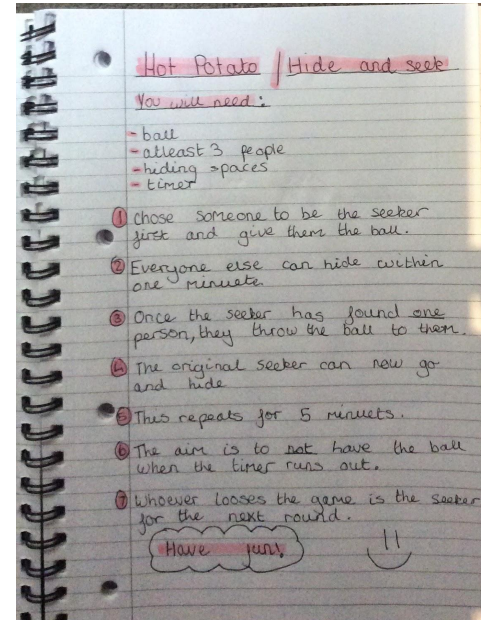 Hot Potato / Hide and seek
You will need:
- ball
- atleast 3 people
- hiding spaces
- timer
1 chose someone to be the seeker
first and give them the ball.
2 Everyone else can hide within
one minuete
3 Once the seeker has found one
person, they throw the ball to them.
4 The original seeker can now go
and hide
5 This repeats for 5 minuets.
6 The aim is to not have the ball
when the timer runs out.
7 Whoever looses the game is the seeker
for the next round.
Have fun!